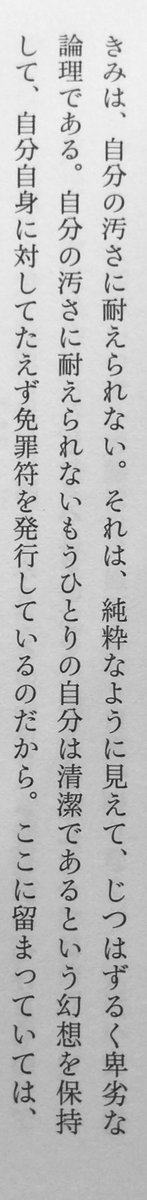 きみは、自分の汚さに耐えられない。それは、純粋なように見えて、じつはずるく卑劣な
論理である。自分の汚さに耐えられないもうひとりの自分は清潔であるという幻想を保持
して、自分自身に対してたえず免罪符を発行しているのだから。ここに留まっていては、